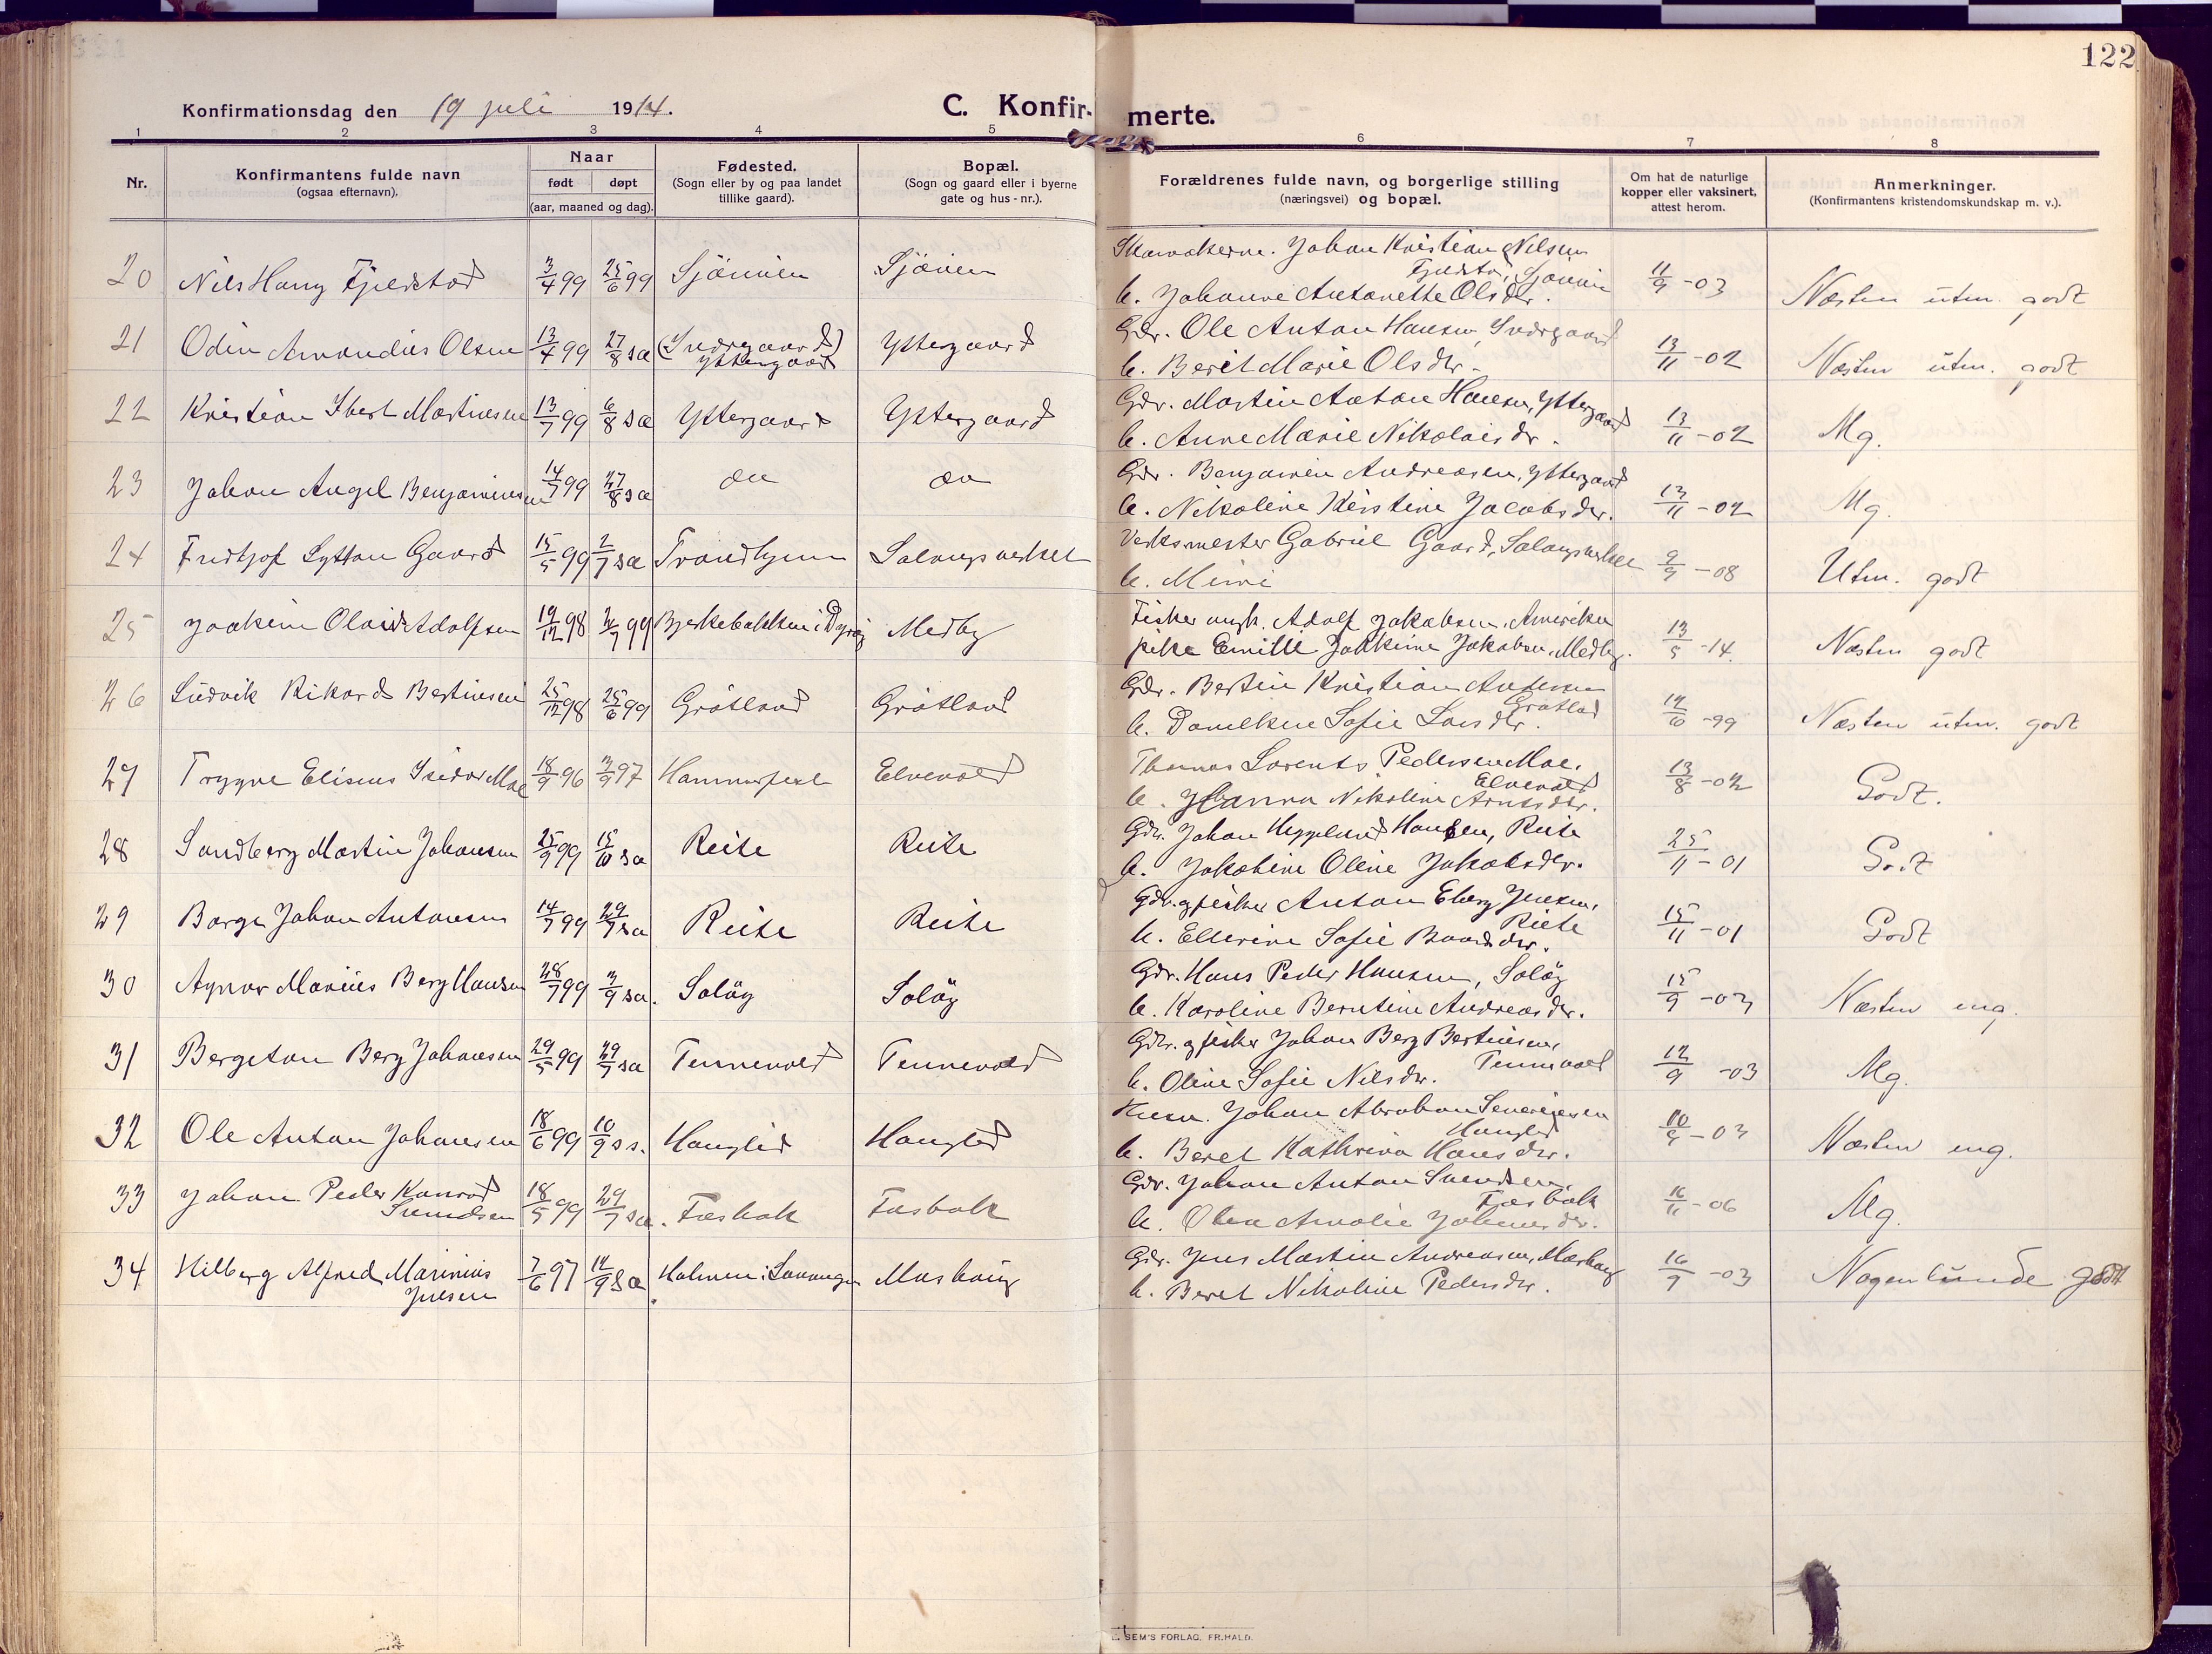 122
Konfirmationsdag den 19 juli 1914.
C. Konfir-merte.
1 2 3 4 5 6 7 8
Nr.
Konfirmantens fulde navn
(ogsaa efternavn).
Naar
født døpt
(aar, maaned og dag).
Fødested.
(Sogn eller by og paa landet
tillike gaard).
Bopæl.
(Sogn og gaard eller i byerne
gate og hus-nr.).
Forældrenes fulde navn, og borgerlige stilling
(næringsvei) og bopæl.
Om hat de naturlige
kopper eller vaksinert,
attest herom.
Anmerkninger.
(Konfirmantens kristendomskundskap m. v.).
20 Nils Harry Fjeldstad 3/4 99 25/6 99 Sjöveien Sjöveien
Johan Kristian Nilsen
Fjeldstad, Sjöveien
h. Johanne Antonette Olsdtr. 11/9 -03 Næsten utm. godt
21 Odin Amandius Olsen 13/4 99 27/8 sa (Indregaard)
Yttergaard Yttergaard
Gdr. Ole Anton Hansen, Indregaard
h. Berit Marie Olsdtr. 13/11 -02 Næsten utm. godt
22 Kristian Ibert Martinesen 13/7 99 6/8 sa Yttergaard Yttergaard
Gdr. Martin Anton Hansen, Yttergaard
h. Anne Marie Nikolaisdr. 13/11 -02 Mg.
23 Johan Angel Benjaminsen 14/7 99 27/8 sa do do
Gdr. Benjamin Andreasen, Yttergaard
h. Nikoline Kristine Jacobsdtr. 13/11 -02 Mg.
24 Fridtjof Lytton Gaard 15/5 99 2/7 sa Trondhjem Salangsverket
Verksmester Gabriel Gaard, Salangsverket
h. Mimi 9/9 -08 Utm. godt
25 Joakim Olaids Adolfsen 19/12 98 2/7 99 Bjerkebakken i Dyröy Medby
Fisker ungk. Adolf Jakobsen, Amerika
pike Emilie Joakime Jakobsen, Medby. 13/5 -14. Næsten godt
26 Ludvik Rikard Bertinsen 25/12 98 25/6 99 Gratland Gratland
Gdr. Bertin Kristian Andersen
Gratland
h. Danelken Sofie Larsdtr. 12/6 -99 Næsten utm. godt
27 Trygve Elisius Isidor Moe 18/9 96 3/9 97 Hammerfest Elvevold
Thomas Lorents Pedersen Moe.
Elvevold
h. Hanna Nikoline Arntsdtr. 13/8 -02 Godt.
28 Sandberg Martin Johansen 25/9 99 15/10 sa Reite Reite
Gdr. Johan Heggelund Hansen, Reite
h. Jakobine Oline Jakobsdtr. 25/11 -01 Godt
29 Borge Johan Antonsen 14/7 99 29/7 sa Reite Reite
Gdr. og fisker Anton Eberg Jensen,
Reite
h. Ellerine Sofie Baardsdtr. 15/11 -01 Godt
30 Agnar Marius Berg Hansen 28/7 99 3/9 sa. Soløy Soløy
Gdr. Hans Peder Hansen, Soløy
h. Karoline Berntine Andreasdtr. 15/9 -03 Næsten mg.
31 Bergeton Berg Johansen 29/5 99 29/7 sa Tennevold Tennevold
Gdr. og fisker Johan Berg Bertinsen,
Tennevold
h. Oline Sofie Nilsdtr. 12/9 -03 Mg.
32 Ole Anton Johansen 18/6 99 10/9 s.s. Hanglid Hanglid
Husm. Johan Abraham Severinsen
Hanglid
h. Beret Kathrina Hansdtr. 10/9 -03 Næsten mg.
33 Johan Peder Konrad
Svendsen 18/5 99 29/7 sa. Fosbak Fosbak
Gdr. Johan Anton Svendsen,
Fosbak
h. Olea Amalie Johansdtr. 16/11 -06 Mg.
34 Hilberg Alfred Marinius
Jensen 7/6 97 12/9 sa Holmen i Lavangen Moshaug
Gdr. Jens Martin Andreassen, Moshaug
h. Beret Nikoline Pedersdtr. 16/9 -03 Nogenlunde godt
SEM'S FORLAG, FR.HALD.